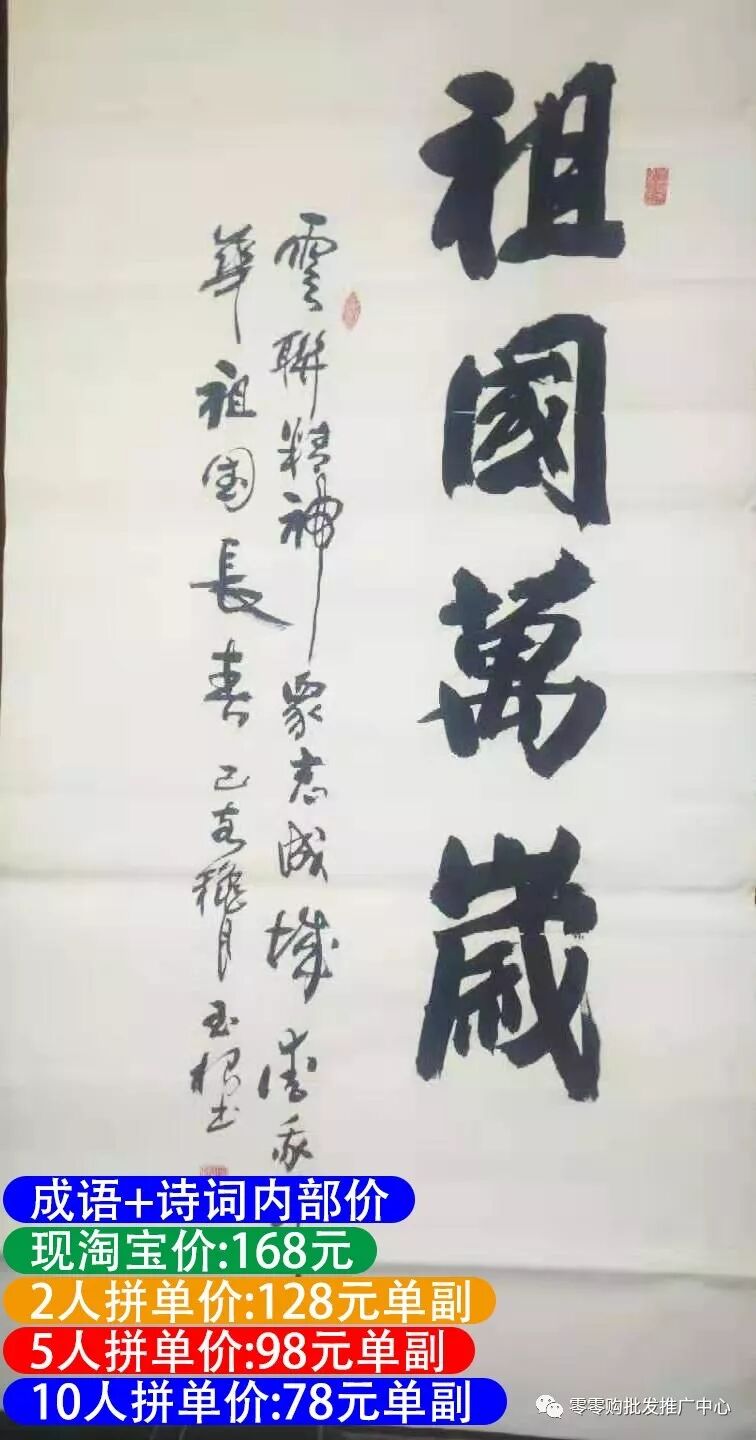 祖國萬歲
雲聯精神衆志成城愛我中
華祖國長春己亥穐月玉根书
成语+诗词内部价
现淘宝价:168元
2人拼单价:128元单副
5人拼单价:98元单副
10人拼单价:78元单副
零零购批发推广中心